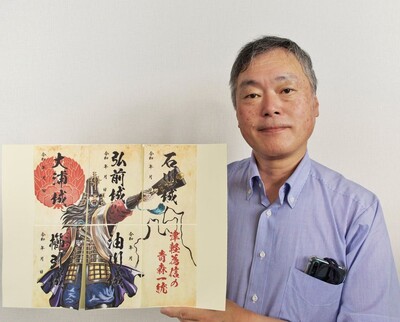 石川城
令和 年 月 日
津軽為信の
青森一統
弘前城
令和 年 月 日
油川
令和 年 月
大浦城
令和 年 月 日
令和 年 月 日